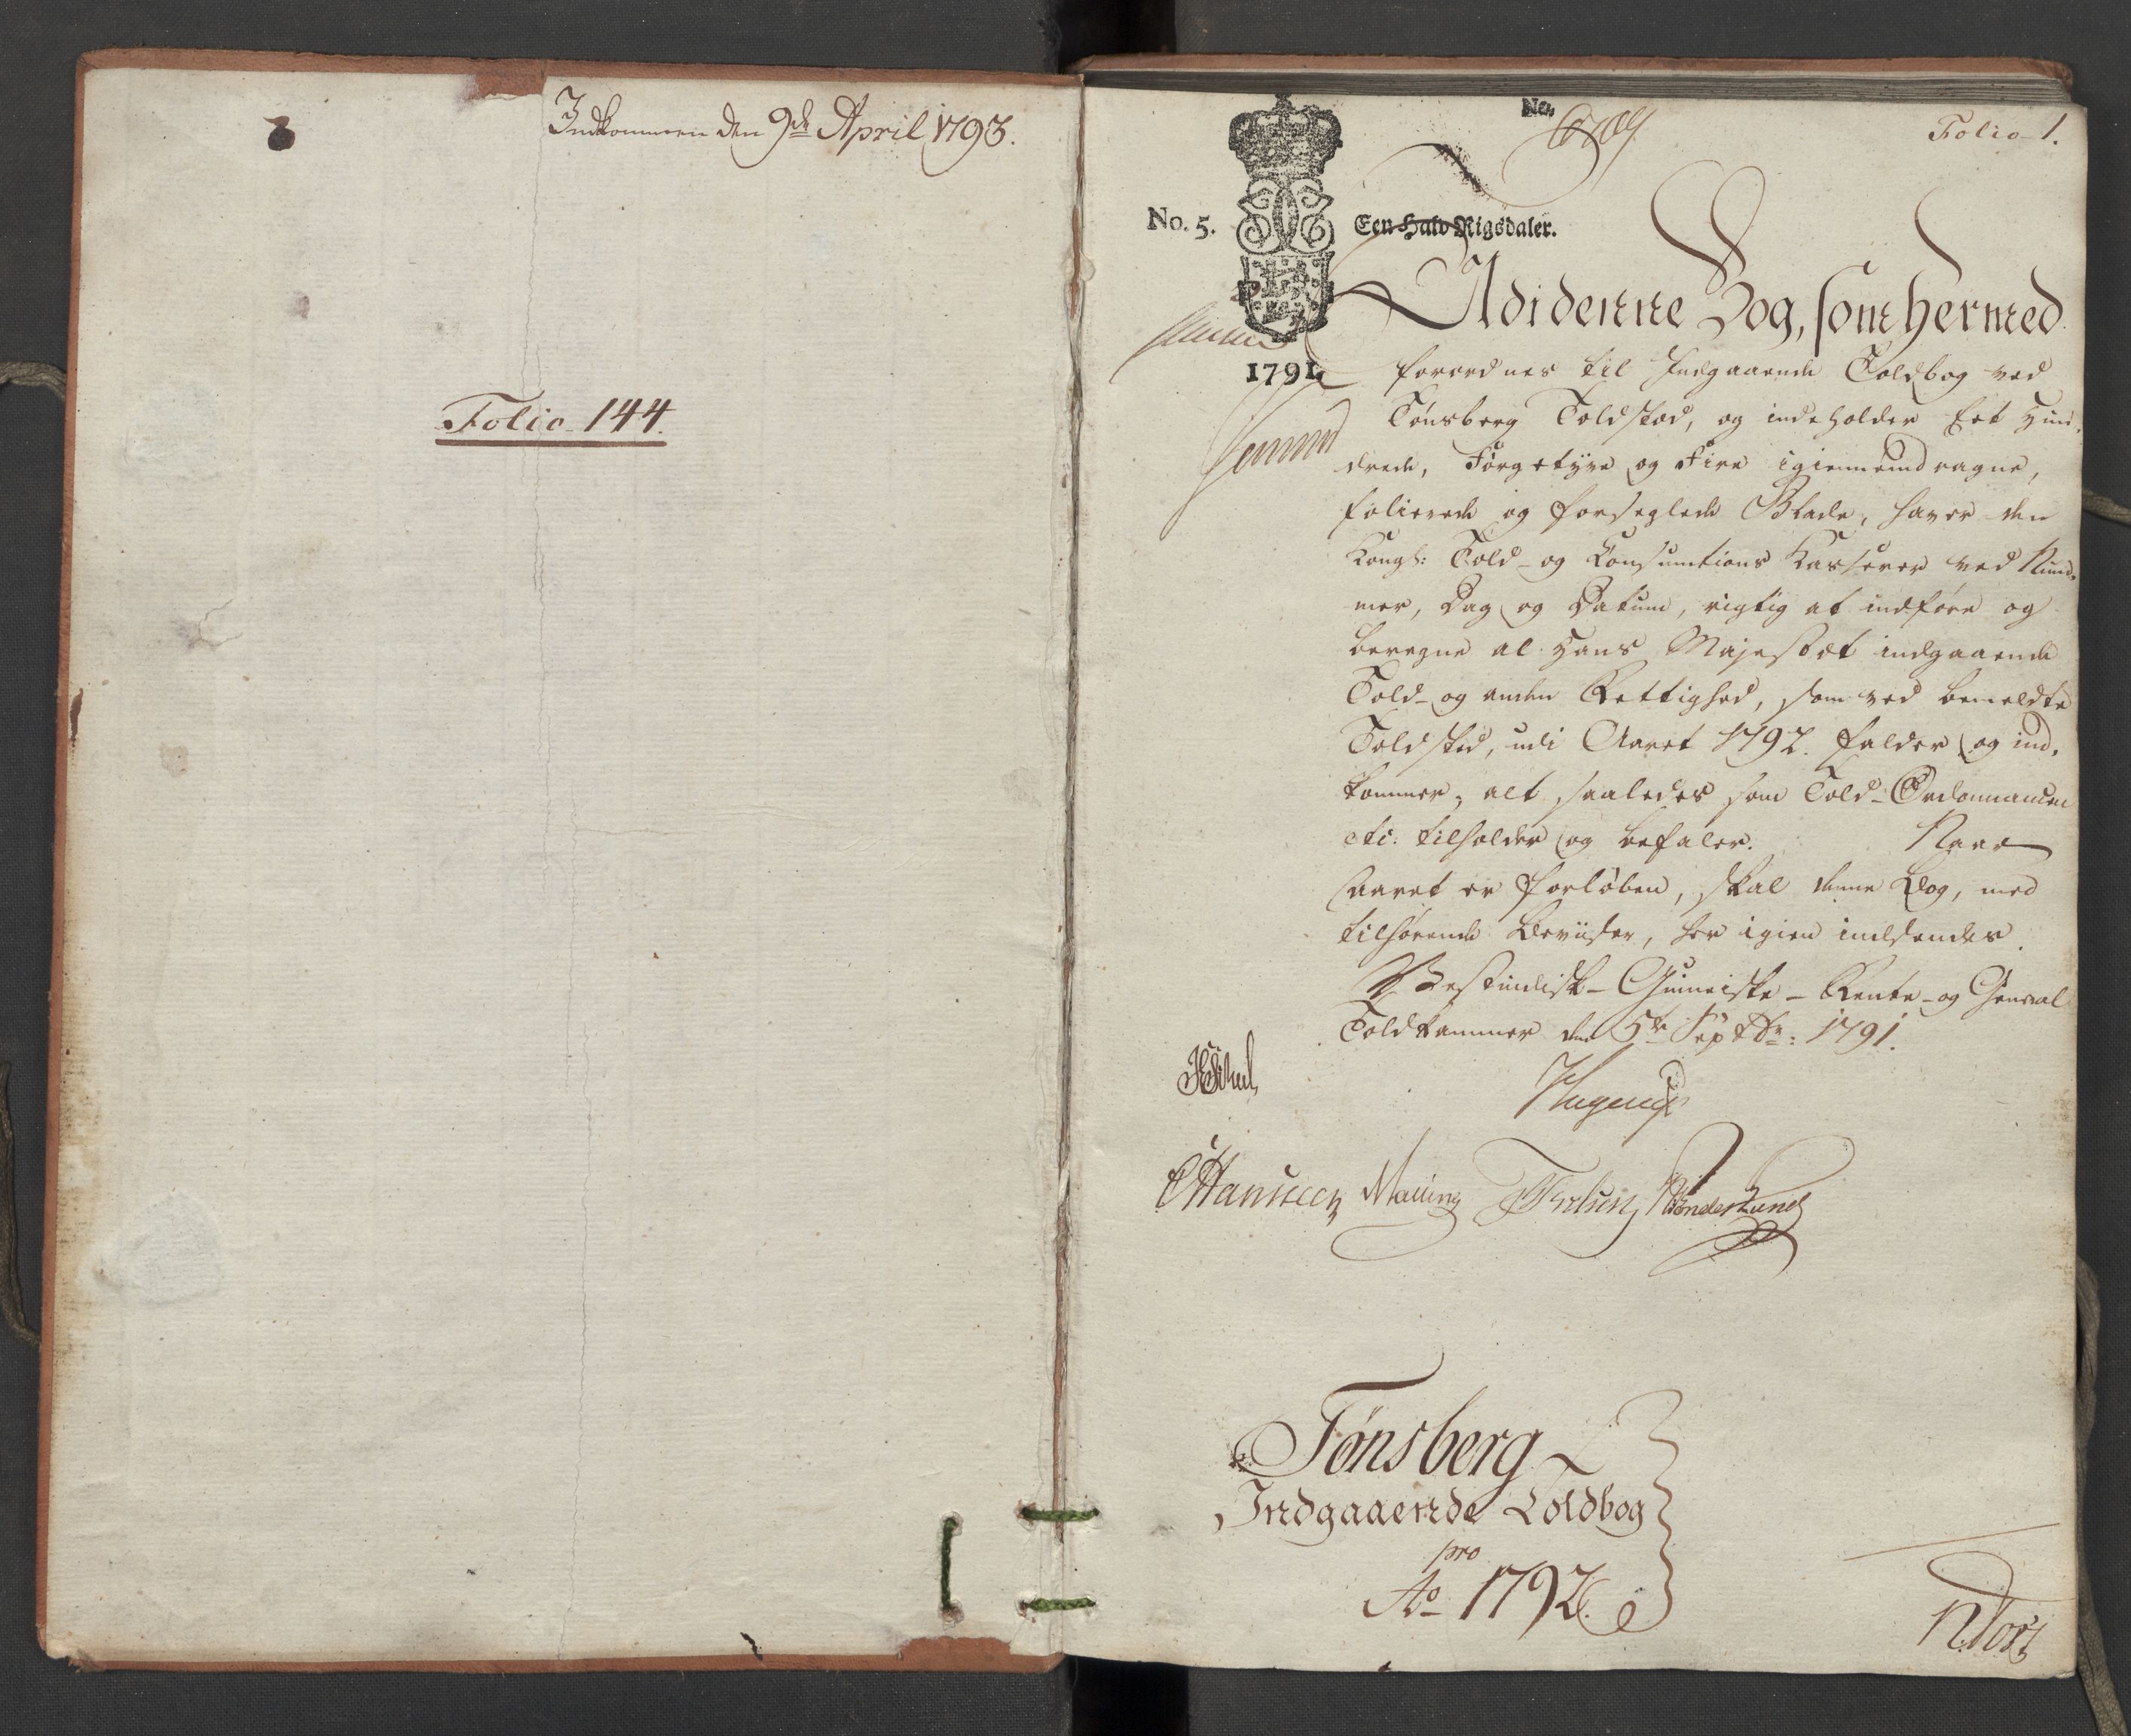 Indkommen den 9de April 1793.
Folio 144.
No.
Folio 1.
No. 5.
Een Halv Rigsdaler.
1791
Udi denne Bog, som hermed
forordnes til Indgaaende Toldbog ved
Tønsberg Toldsted, og indeholder Eet Hun¬
drede, Førgetyve og Fire igiennemdragne,
folierede og forseglede Blade, haver den
Kongl: Told- og Consumtions Kasserer ved Num¬
mer, Dag og Datum, rigtig at indføre og
beregne al Hans Majestæt indgaaende
Told- og anden Rettighed, som ved bemeldte
Toldsted, udi Aaret 1792. falder og ind¬
kommer, alt saaledes som Told-Ordonnancen
etc: tilholder og befaler. Naar
Aaret er forløben, skal denne Bog, med
tilhørende Beviiser, her igien indsendes.
Vestindisk- Guineiske- Rente- og General
Toldkammer den 5te Septbr: 1791.
Hansteen Malling
Tønsberg
Indgaaende Toldbog
pro
Ao 1792.